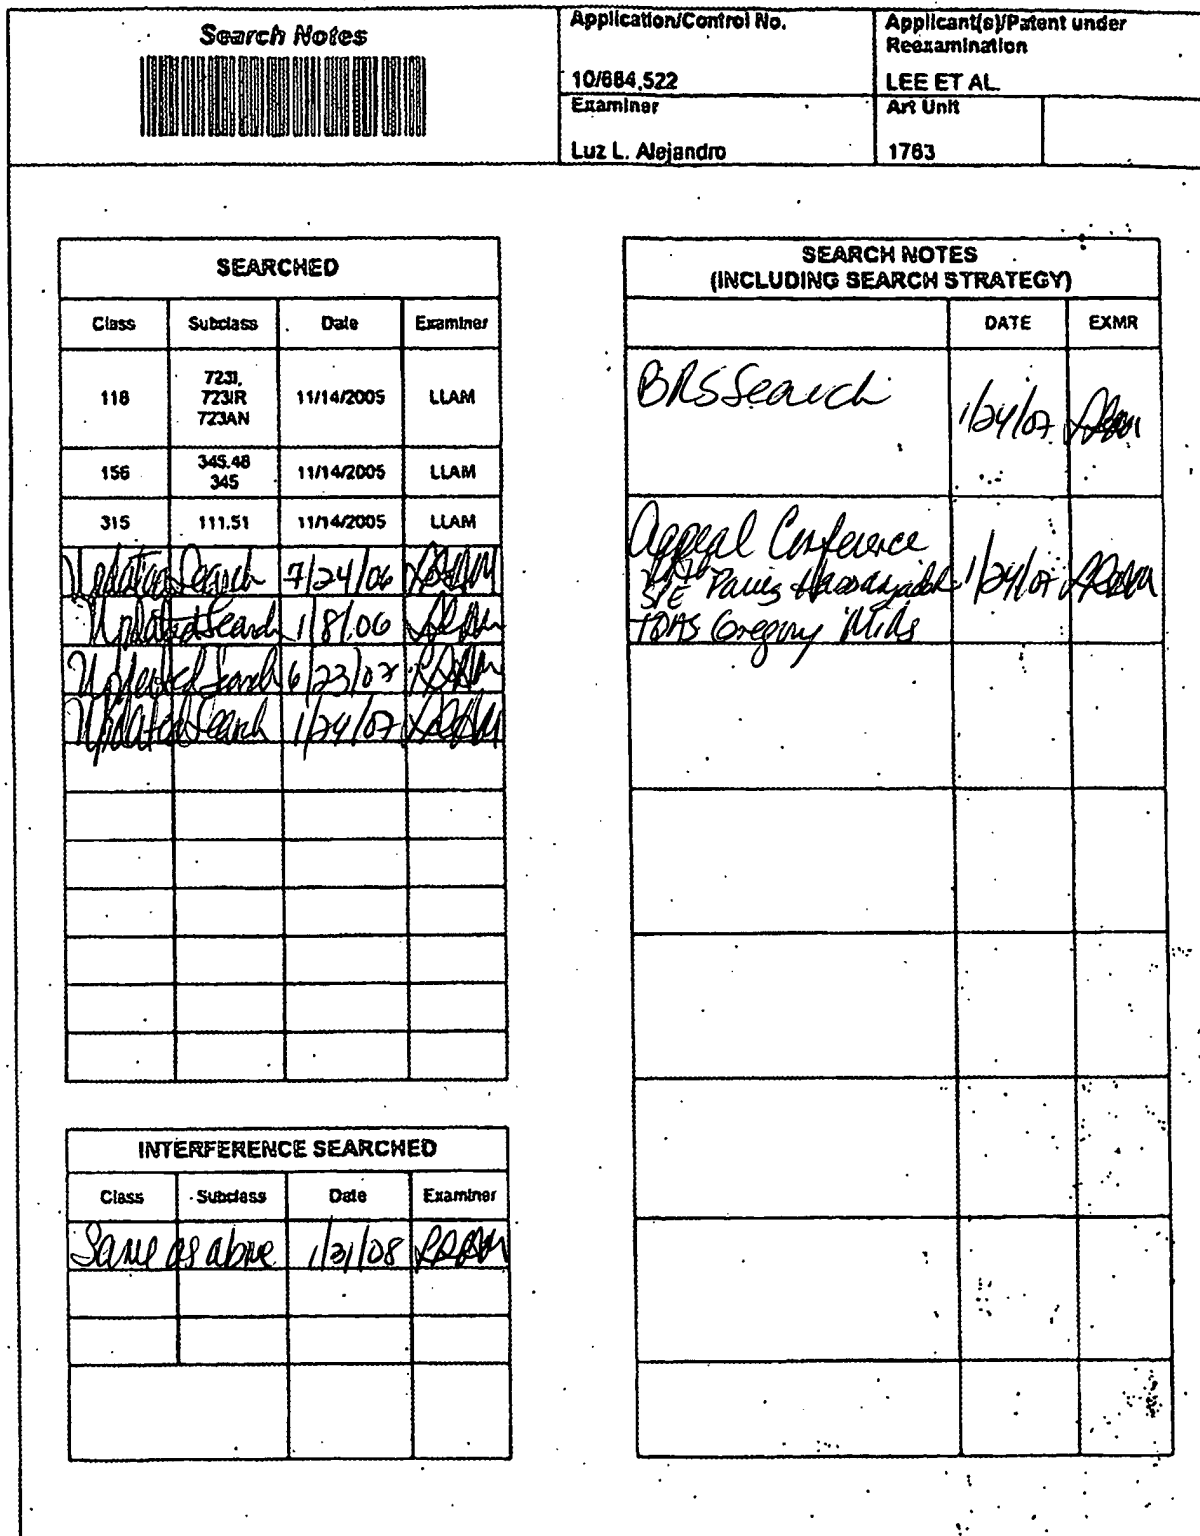 Search Notes
Application/Control No.
10/684,522
Applicant(s)/Patent under
Reexamination
LEE ET AL.
Examiner
Luz L. Alejandro
Art Unit
1763
SEARCHED
Class Subclass Date Examiner
118 723I, 723IR 723AN 11/14/2005 LLAM
156 345.48 345 11/14/2005 LLAM
315 111.51 11/14/2005 LLAM
Updated Search 7/24/06 LLAM
Updated Search 1/8/06 LLAM
Updated Search 6/23/07 LLAM
Updated Search 1/24/07 LLAM
INTERFERENCE SEARCHED
Class Subclass Date Examiner
Same as above 1/31/08 LLAM
SEARCH NOTES
(INCLUDING SEARCH STRATEGY)
DATE EXMR
BRS Search 1/24/07 LLAM
Appeal Conference
SPE Parviz Hassanzadeh 1/24/07 LLAM
TQAS Gregory Mills